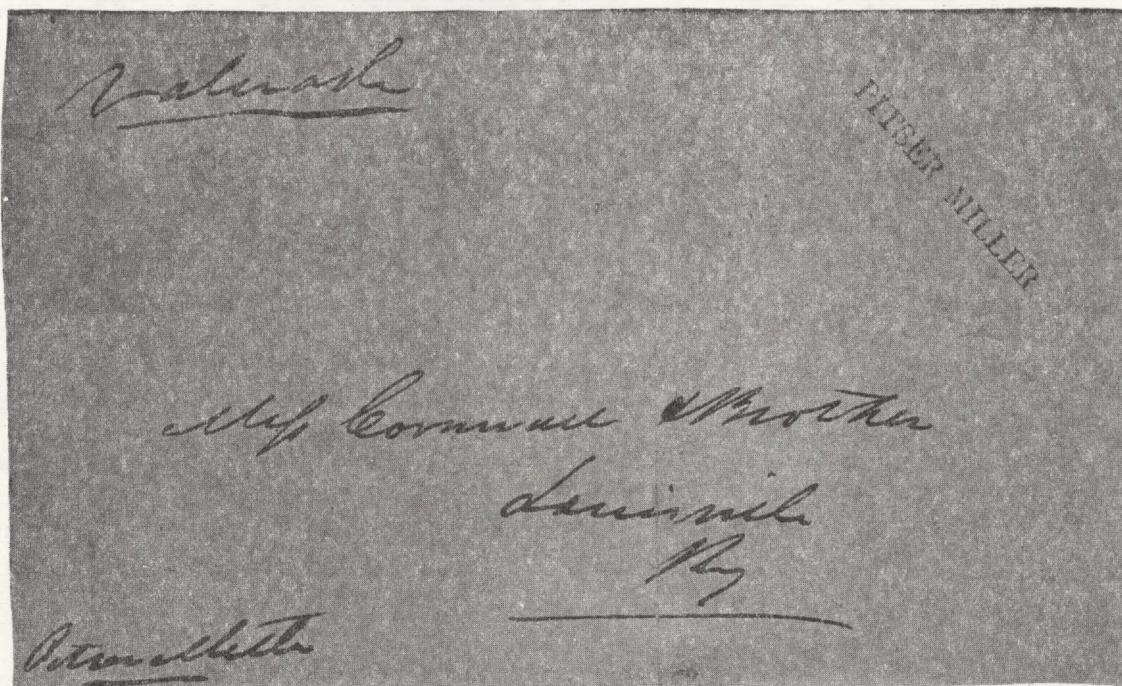 Valuable
PITSER MILLER
Mess Cornwall & Brother
Louisville
Ky
Pitser Miller